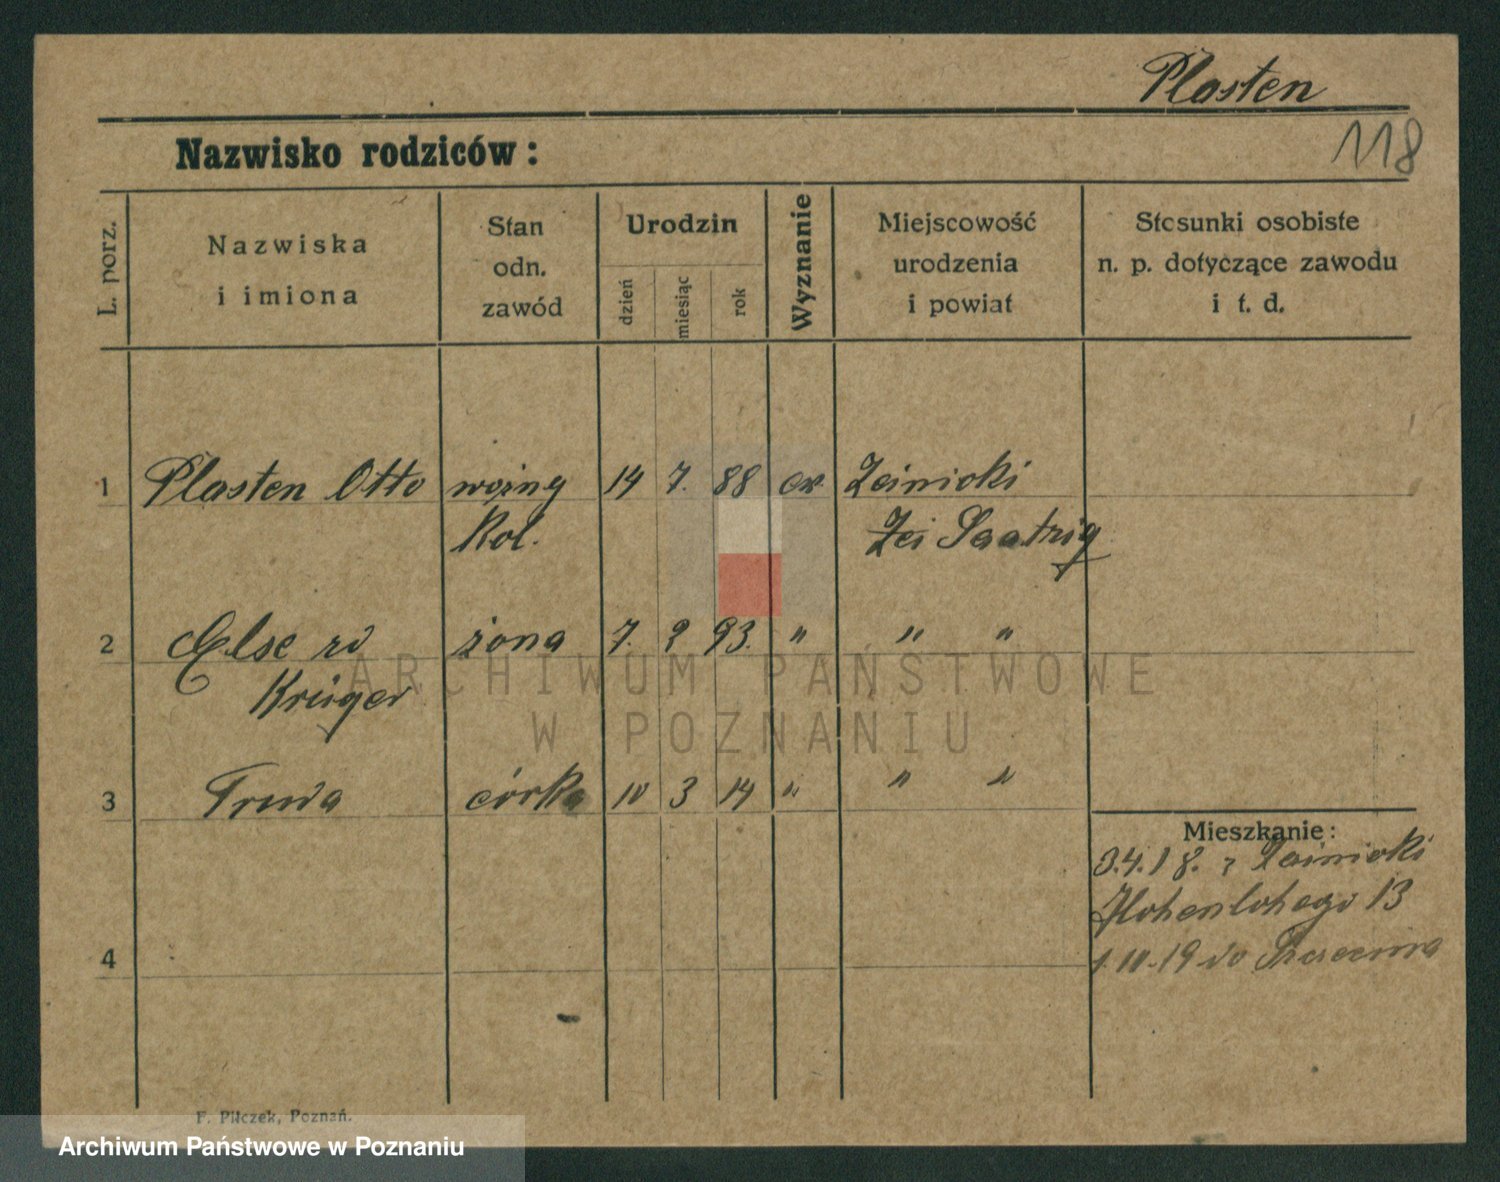 Plasten
118
Nazwisko rodziców:
L. porz.
Nazwiska
i imiona
Stan
odn.
zawód
Urodzin
dzień
miesiąc
rok
Wyznanie
Miejscowość
urodzenia
i powiat
Stosunki osobiste
n. p. dotyczące zawodu
i t. d.
1 Plasten Otto woźny 14 7. 88 ew.
Kol. Saatzig
2 Else żona 7. 2 93. " " "
Krüger
3 Truda córka 10 3 14 " " "
Mieszkanie:
3.4.18. z
13
4 1.10.19 do
F. Pilczek, Poznań.
ARCHIWUM PAŃSTWOWE
W POZNANIU
Archiwum Państwowe w Poznaniu